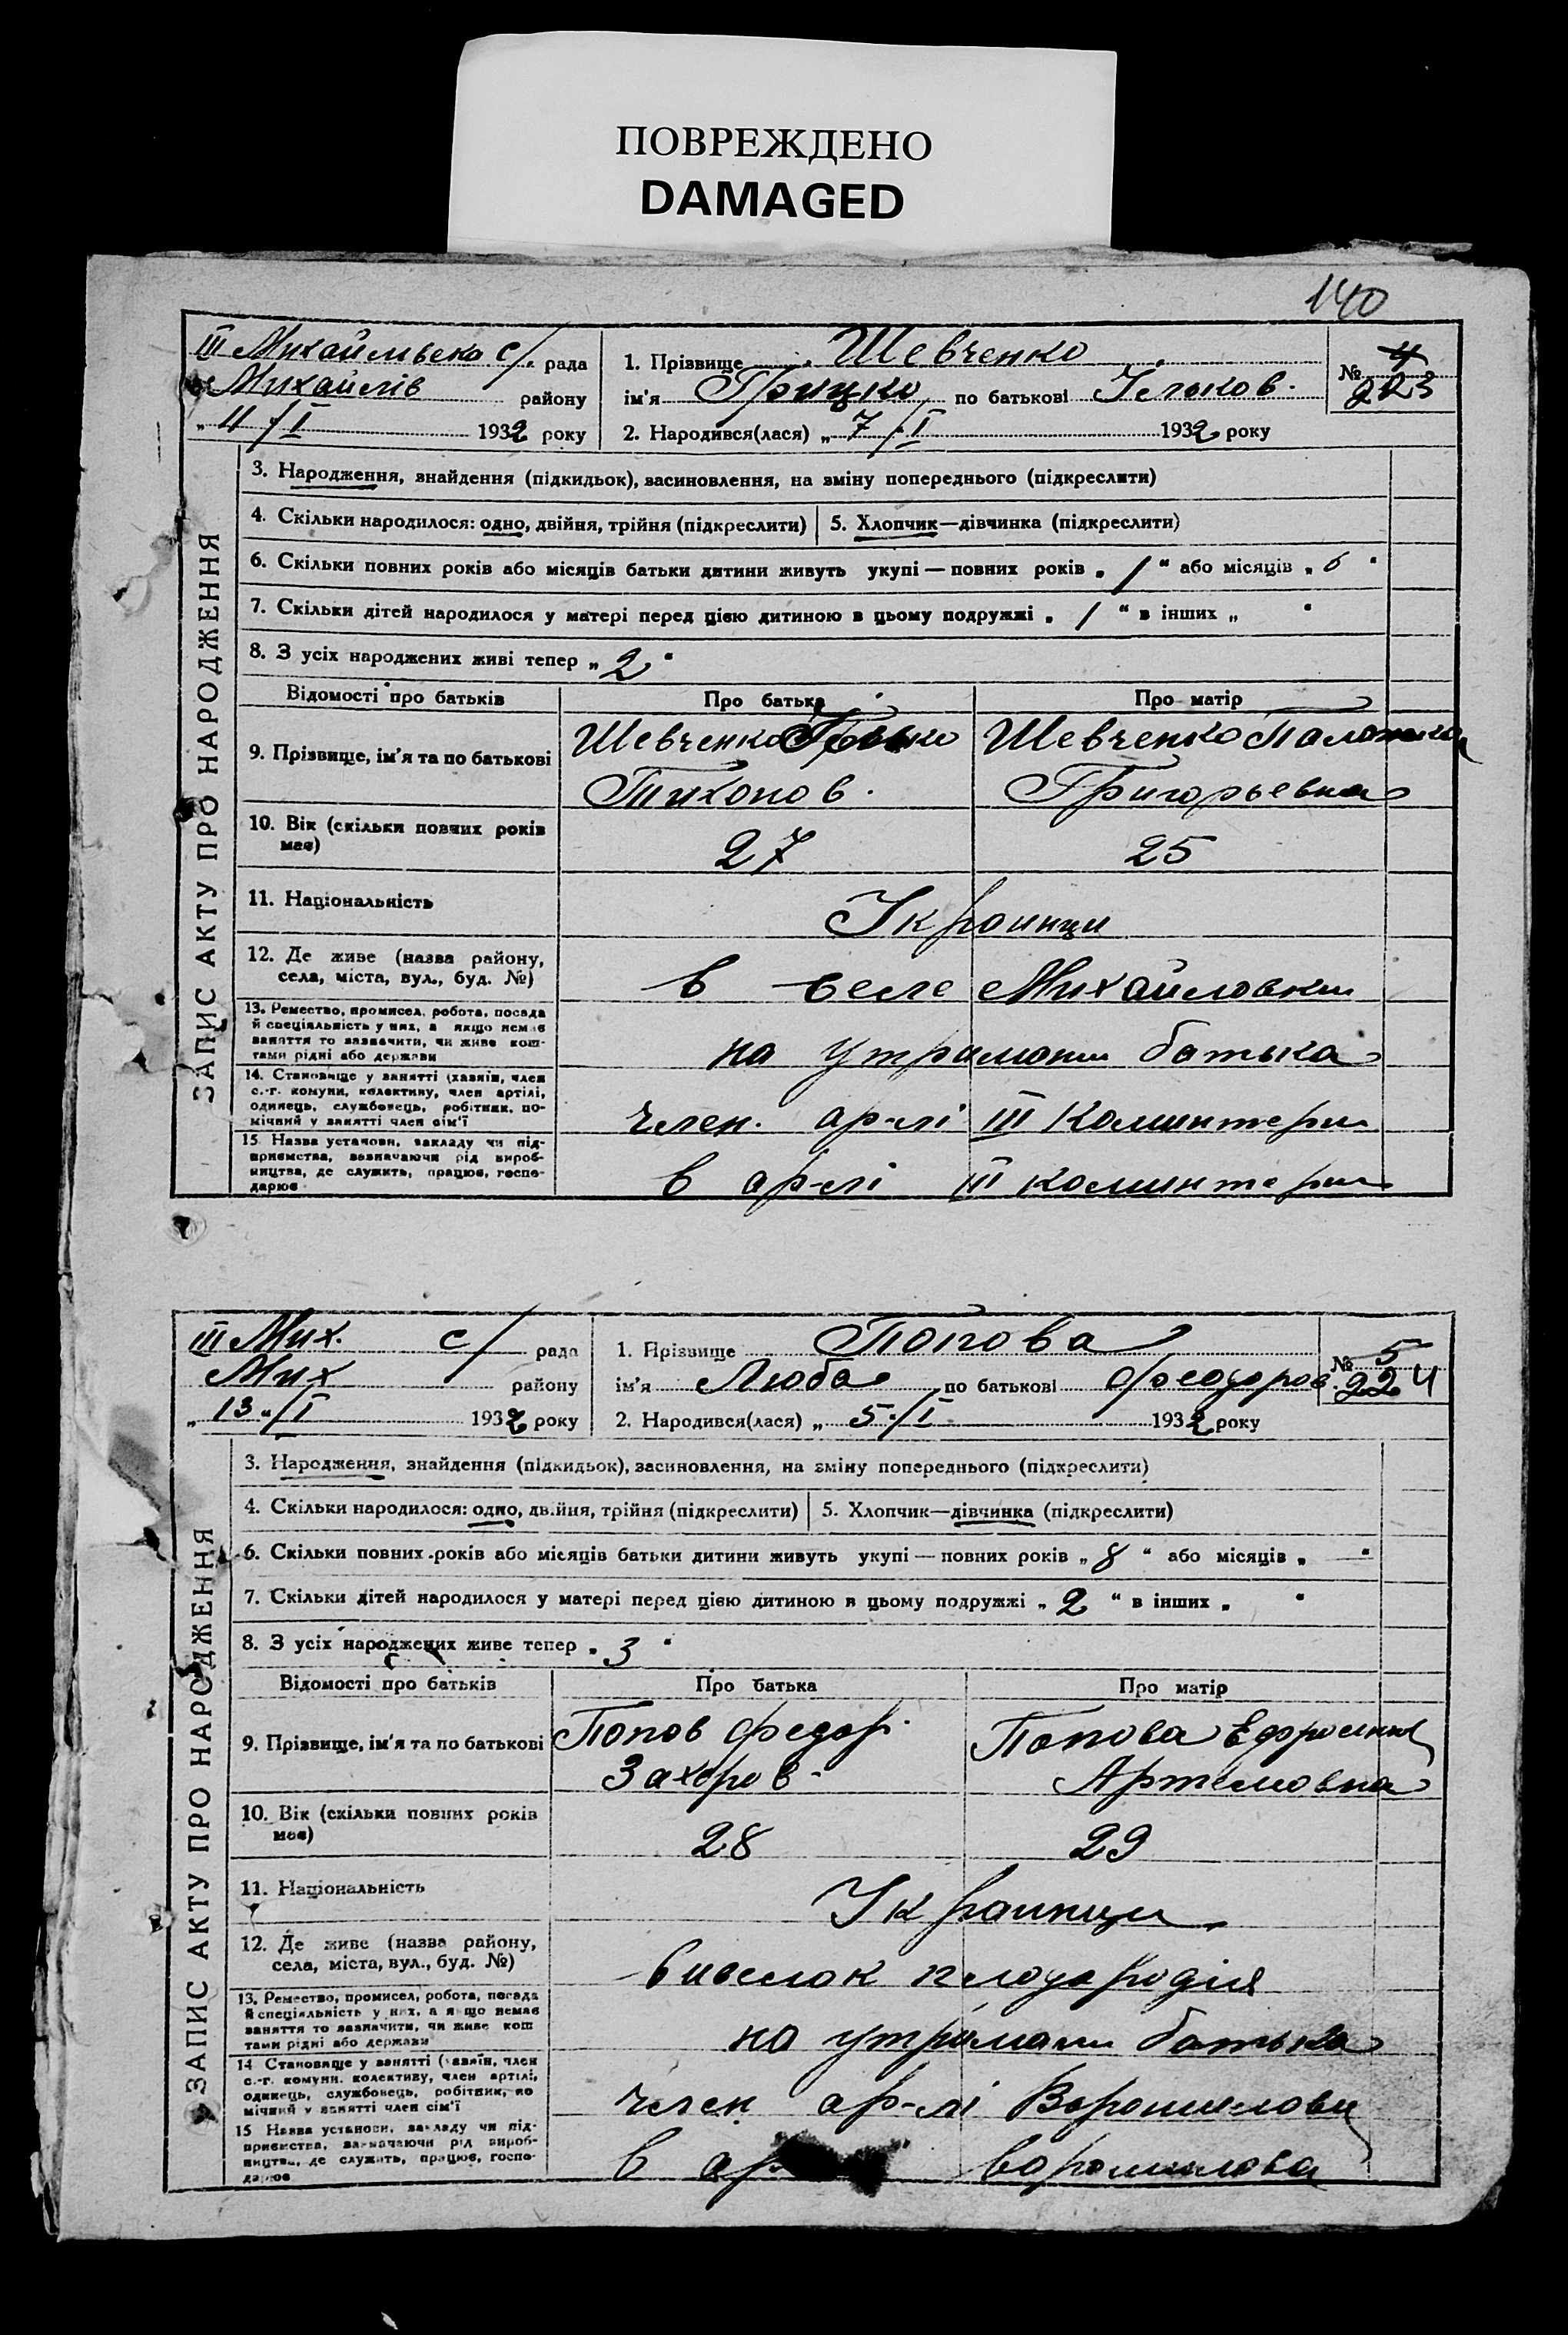 ПОВРЕЖДЕНО
DAMAGED
140
III Михайлівско с/. рада
Михайлів району
„ 11 / I 1932 року
1. Прізвище Шевченко
ім'я Грицко по батькові Ільков.
2. Народився(лася) „ 7 / I 1932 року
№ 4
223
ЗАПИС АКТУ ПРО НАРОДЖЕННЯ
3. Народження, знайдення (підкидьок), васиновлення, на зміну попереднього (підкреслити)
4. Скільки народилося: одно, двійня, трійня (підкреслити) 5. Хлопчик—дівчинка (підкреслити)
6. Скільки повних років або місяців батьки дитини живуть укупі — повних років „ 1 “ або місяців „ 6 “
7. Скільки дітей народилося у матері перед цією дитиною в цьому подружжі „ 1 “ в інших „ “
8. З усіх народжених живі тепер „ 2 “
Відомості про батьків Про батька Про матір
9. Прізвище, ім'я та по батькові Шевченко Шевченко
Тихонов. Григорьевна
10. Вік (скільки повних років має) 27 25
11. Національність Украинци
12. Де живе (назва району, села, міста, вул., буд. №) в селе Михайловки
13. Ремество, промисел, робота, посада й спеціяльність у них, а якщо немає заняття то зазначити, чи живе коштами рідні або держави на утримани батька
14. Становище у занятті (хазяїн, член с.-г. комуни, колективу, член артілі, одинець, службовець, робітник, помічний у занятті член сім'ї член. ар-лі III Коминтерн
15. Назва установи, закладу чи підприємства, зазначаючи рід виробництва, де служить, працює, господарює в ар-лі III коминтерн
III Мих. с/ рада
Мих району
„ 13 “ / I 1932 року
1. Прізвище Попова
ім'я Люба по батькові Феодоров.
2. Народився(лася) „ 5 / I 1932 року
№ 5
224
ЗАПИС АКТУ ПРО НАРОДЖЕННЯ
3. Народження, знайдення (підкидьок), засиновлення, на зміну попереднього (підкреслити)
4. Скільки народилося: одно, двійня, трійня (підкреслити) 5. Хлопчик—дівчинка (підкреслити)
6. Скільки повних років або місяців батьки дитини живуть укупі — повних років „ 8 “ або місяців „ — “
7. Скільки дітей народилося у матері перед цією дитиною в цьому подружжі „ 2 “ в інших „ “
8. З усіх народжених живе тепер „ 3 “
Відомості про батьків Про батька Про матір
9. Прізвище, ім'я та по батькові Попов Федор. Попова
Захаров- Артемовна
10. Вік (скільки повних років має) 28 29
11. Національність Украинци
12. Де живе (назва району, села, міста, вул., буд. №) плодородія
13. Ремество, промисел, робота, посада й спеціяльність у них, а якщо немає заняття то зазначити, чи живе коштами рідні або держави на утримани батька
14 Становище у занятті (хазяїн, член с.-г. комуни, колективу, член артілі, одинець, службовець, робітник, помічний у занятті член сім'ї член ар-лі Ворошилова
15 Назва установи, закладу чи підприємства, зазначаючи рід виробництва, де служить, працює, господарює в ар- Ворошилова